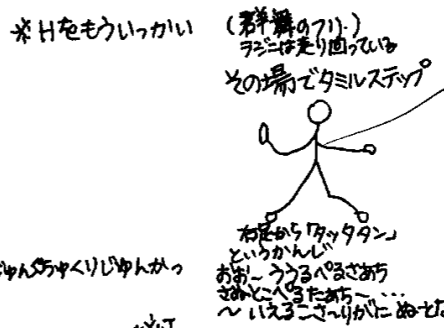 ※Hをもういっかい
(群舞のフリ)
ラジニは走り回っている
その場でタミルステップ
右足から「タッタタン」
というかんじ
じゅんぐちゅくりじゅんかっ
おお〜 ううるぺるさあち
さあとこぺるたあち〜…
〜いえろこさ〜りがに